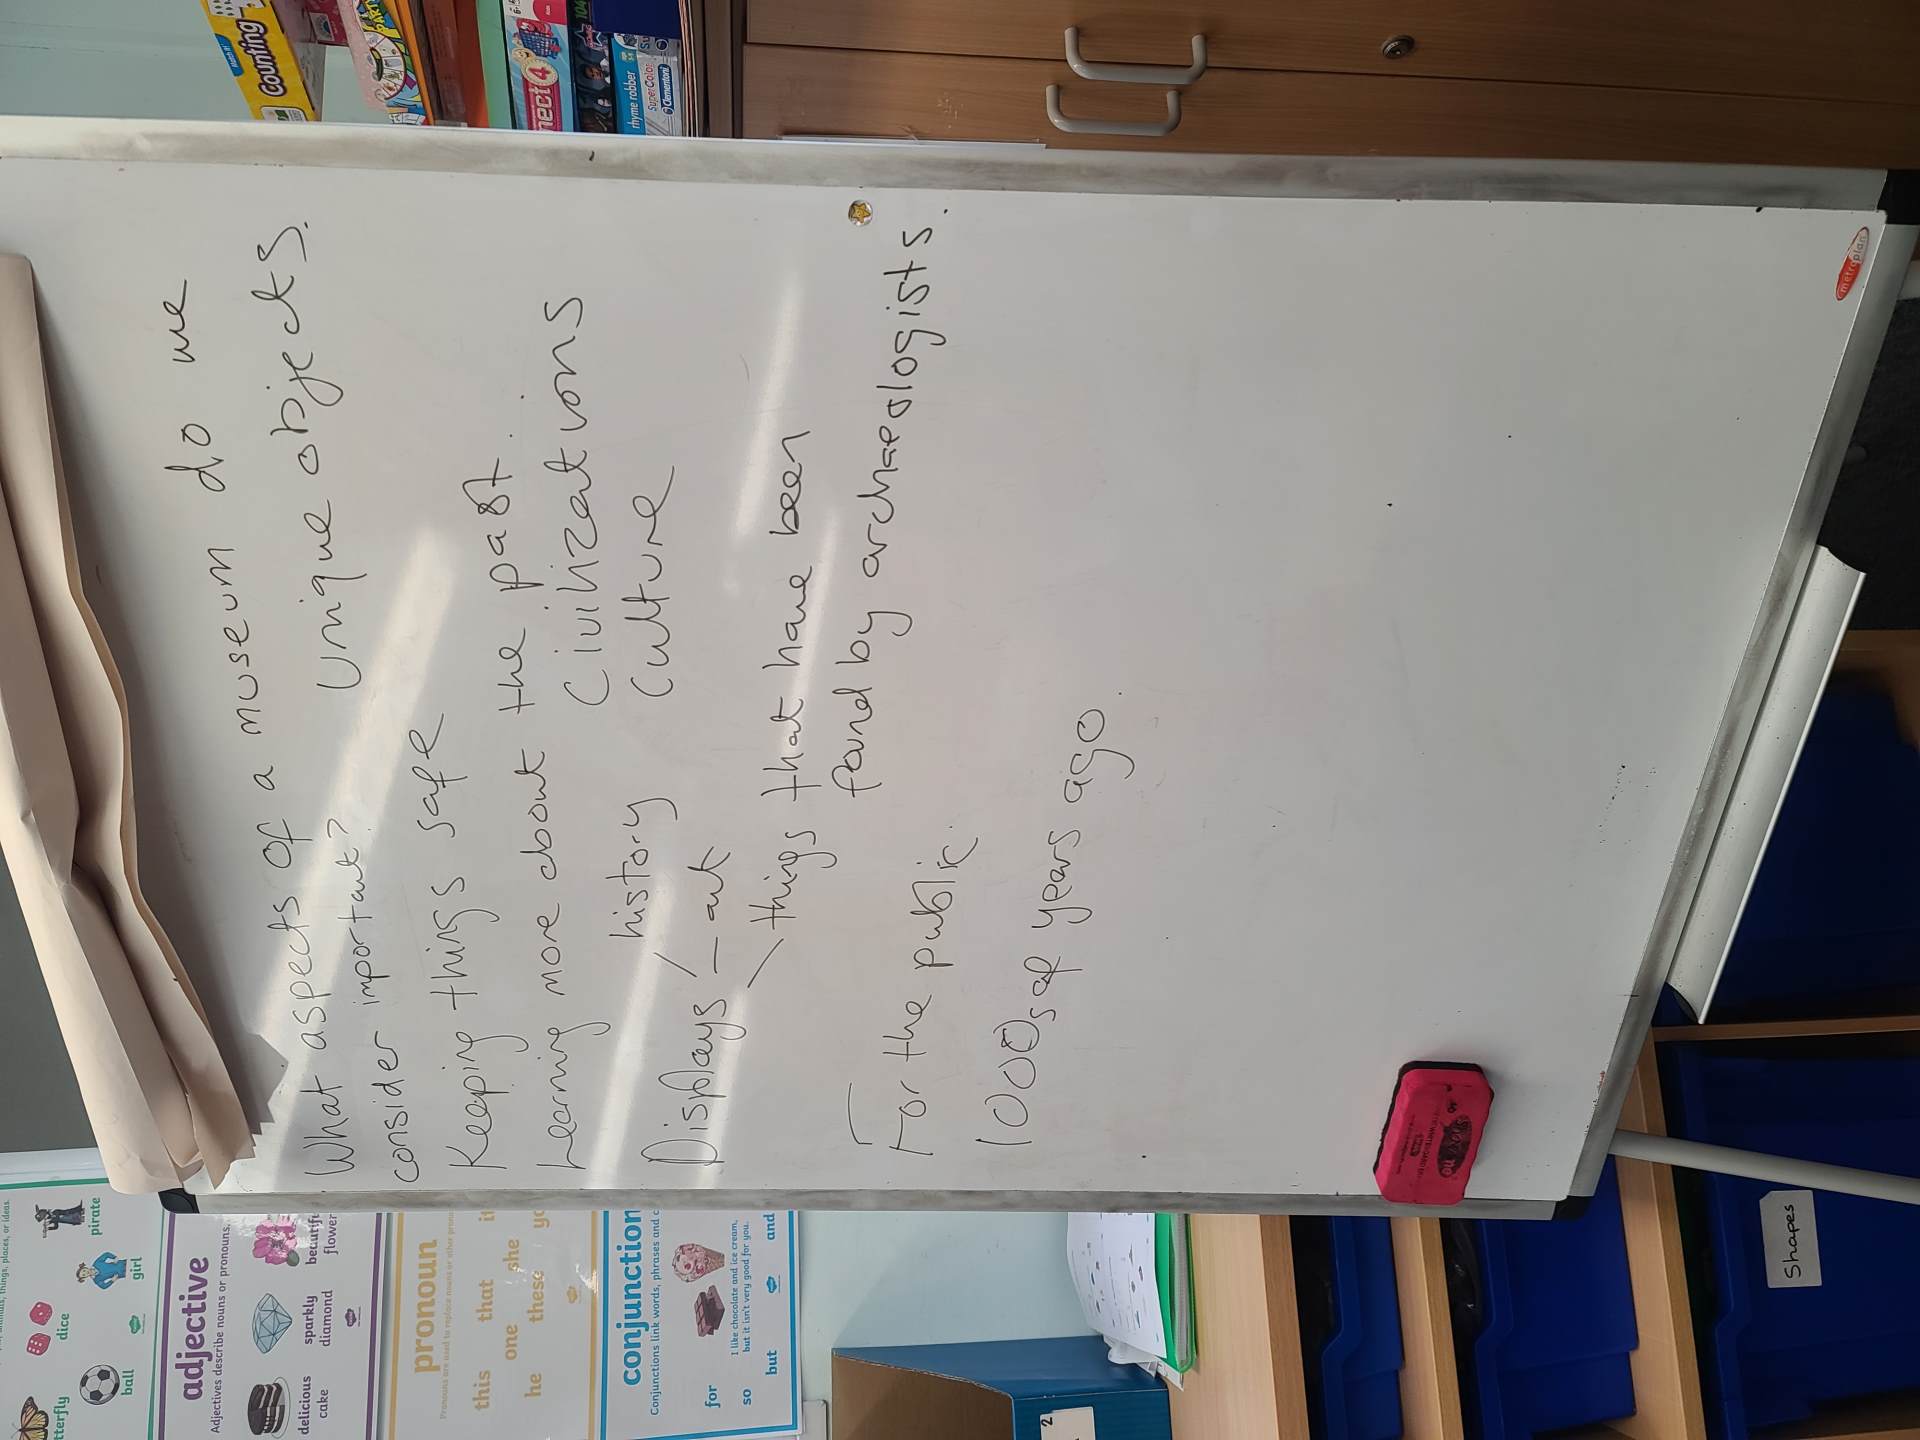 What aspects of a museum do we
consider important?
Unique objects.
Keeping things safe
Learning more about the past.
Civilizations
history
Culture
Displays
art
things that have been
found by archaeologists.
For the public.
1000s of years ago.
metroplan
Counting
PARTY
nect 4
104
rhyme robber
SuperColor
Clementoni
dice
pirate
girl
ball
adjective
Adjectives describe nouns or pronouns.
delicious
cake
sparkly
diamond
flower
pronoun
Pronouns are used to replace nouns or other
this that it
he one these she
conjunction
Conjunctions link words, phrases and
I like chocolate and ice cream,
but it isn't very good for you.
for
so but and
2
Shapes